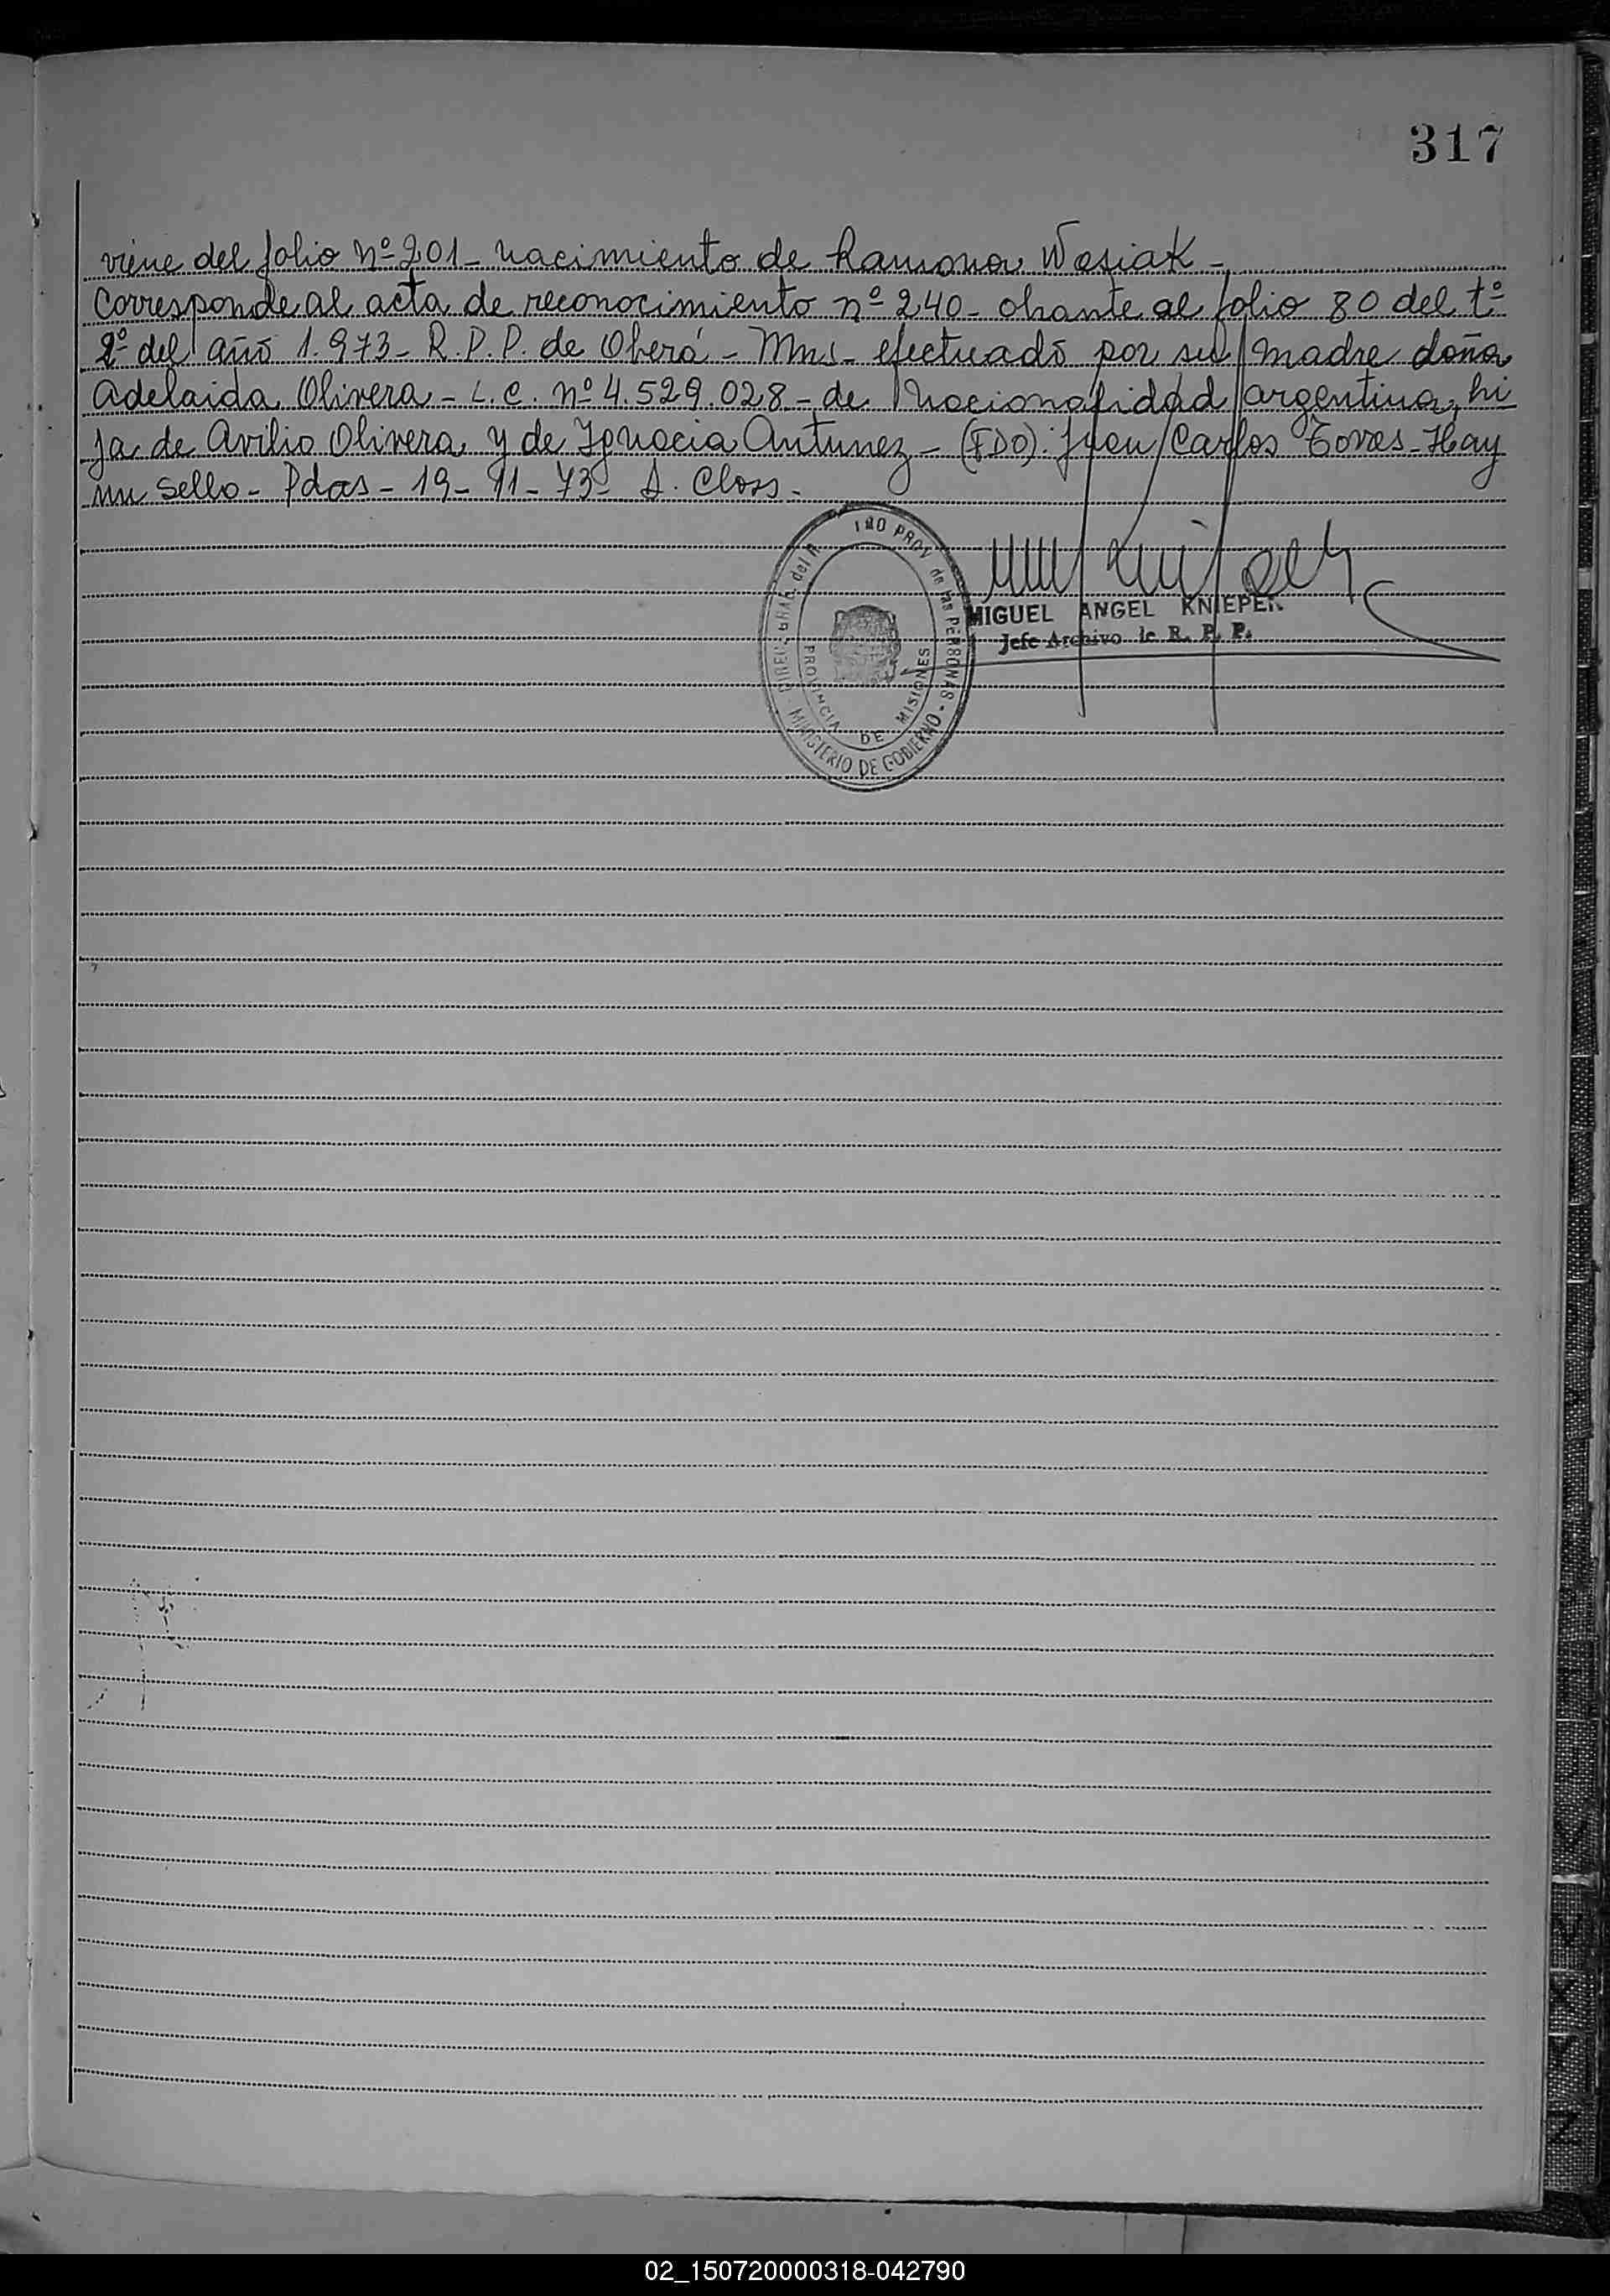 317
viene del folio nº 201 - nacimiento de Ramona Wesiak -
Corresponde al acta de reconocimiento nº 240 - obrante al folio 80 del tº
2º del año 1.973 - R.P.P. de Oberá - Mns - efectuado por su madre doña
Adelaida Olivera - L.C. nº 4.529.028 - de nacionalidad argentina, hi
ja de Avilio Olivera y de Ignacia Antunez - (FDO): Juan Carlos Torres - Hay
un sello - Pdas - 19 - 11 - 73 - A. Closs -
PROV. de las PERSONAS - MINISTERIO DE GOBIERNO
PROVINCIA DE MISIONES
MIGUEL ANGEL KNIEPER
Jefe Archivo de R. P. P.
02_150720000318-042790